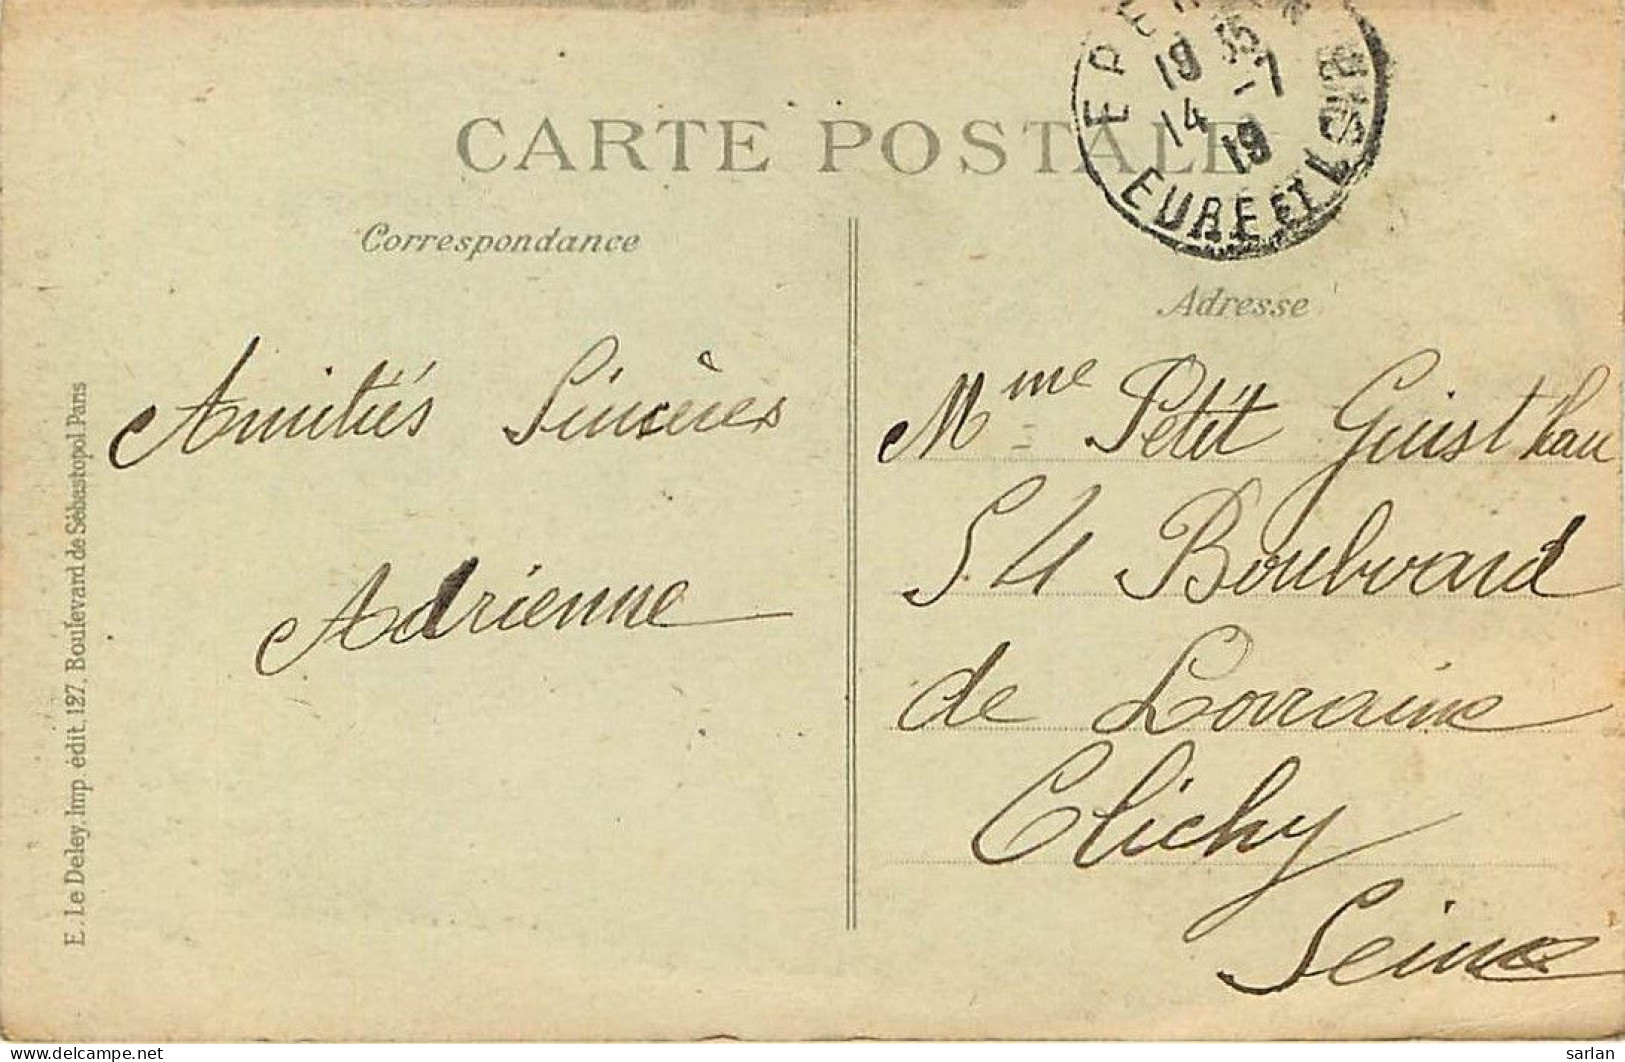 CARTE POSTALE
EPERNON
19 35
14 -7
19
EURE ET L
Correspondance
Amitiés Sincères
Adrienne
Adresse
Mme Petit Guist'hau
54 Boulevard
de Lorraine
Clichy
Seine
E. Le Deley, Imp édit. 127, Boulevard de Sébastopol Paris
delcampe.net
sarlan